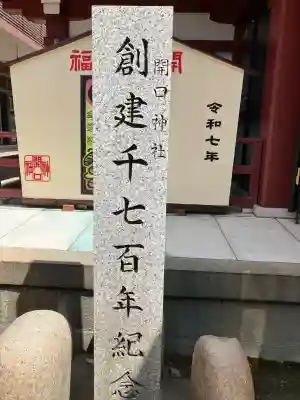 開口神社
創建千七百年紀念
福 開
令和七年